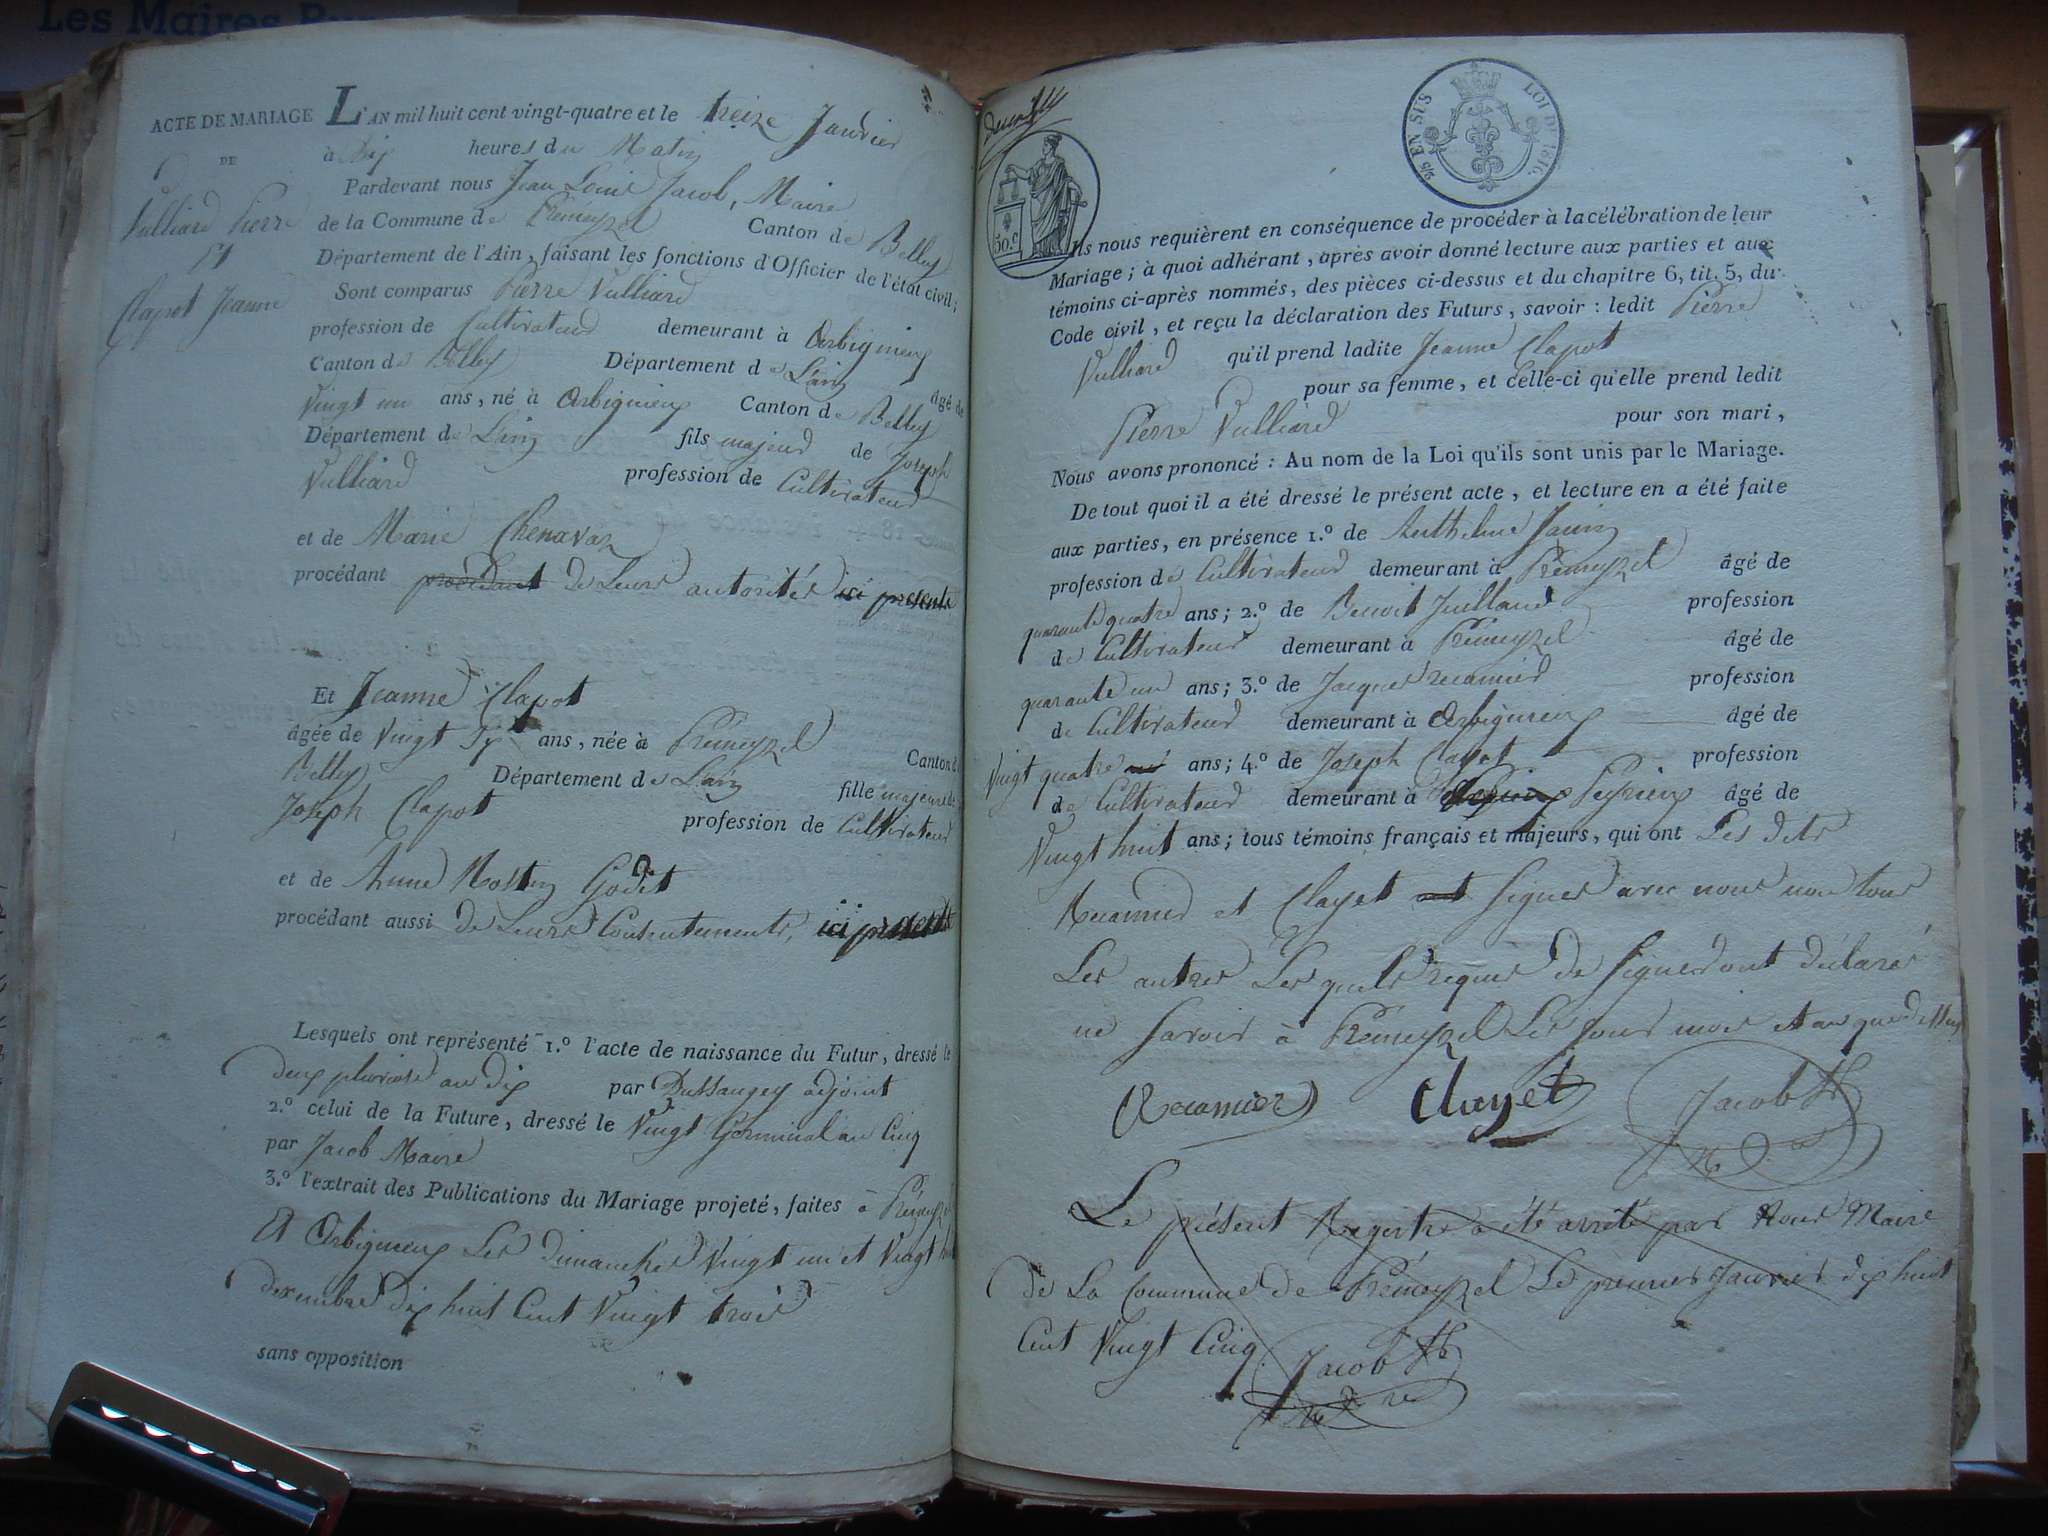 Les Maires
ACTE DE MARIAGE
DE
Vulliard Pierre
Et
Clapot Jeanne
L'AN mil huit cent vingt-quatre et le treize Janvier
à Dix heures du Matin
Pardevant nous Jean Louis Jacob, Maire
de la Commune de Prémeyzel Canton de Belley
Département de l'Ain, faisant les fonctions d'Officier de l'état civil;
Sont comparus Pierre Vulliard
profession de Cultivateur demeurant à Arbignieu
Canton de Belley Département de L'ain âgé de
Vingt un ans, né à Arbignieu Canton de Belley
Département de L'ain fils majeur de Joseph
Vulliard profession de Cultivateur
et de Marie Chenavaz
procédant procédant de Leurs autorités ici présents
Et Jeanne Clapot
âgée de Vingt Six ans, née à Prémeyzel Canton d
Belley Département de L'ain fille majeure de
Joseph Clapot profession de Cultivateur
et de Anne Godet
procédant aussi de Leurs Consentements, ici présents
Lesquels ont représenté 1.º l'acte de naissance du Futur, dressé le
deux pluviose an dix par Dussaugey adjoint
2.º celui de la Future, dressé le Vingt Germinal an Cinq
par Jacob Maire
3.º l'extrait des Publications du Mariage projeté, faites à Prémeyzel
Et Arbignieu Les dimanches Vingt un et Vingt huit
dexembre dix huit Cent Vingt trois
sans opposition
50.c
2/5 EN SUS LOI DE 1816.
Ils nous requièrent en conséquence de procéder à la célébration de leur
Mariage; à quoi adhérant, après avoir donné lecture aux parties et aux
témoins ci-après nommés, des pièces ci-dessus et du chapitre 6, tit. 5, du
Code civil, et reçu la déclaration des Futurs, savoir: ledit Pierre
Vulliard qu'il prend ladite Jeanne Clapot
pour sa femme, et celle-ci qu'elle prend ledit
Pierre Vulliard pour son mari,
Nous avons prononcé: Au nom de la Loi qu'ils sont unis par le Mariage.
De tout quoi il a été dressé le présent acte, et lecture en a été faite
aux parties, en présence 1.º de Anthelme Janin
profession de Cultivateur demeurant à Prémeyzel âgé de
quarante quatre ans; 2.º de Benoit Juilland profession
de Cultivateur demeurant à Prémeyzel âgé de
quarante un ans; 3.º de Jacques recamier profession
de Cultivateur demeurant à Arbignieu âgé de
Vingt quatre ans; 4.º de Joseph Clayet profession
de Cultivateur demeurant à Peyrieu âgé de
Vingt huit ans; tous témoins français et majeurs, qui ont Les dits
Recamier et Clayet ont Signer avec nous non tous
Les autres Les quels requis de Signer ont déclarés
ne Savoir à Prémeyzel Les Jour mois et an que dessus
Recamier Clayet Jacob
Le présent Registre a été arrêté par Nous Maire
de La Commune de Prémeyzel Le premier Janvier dix huit
Cent Vingt Cinq. Jacob